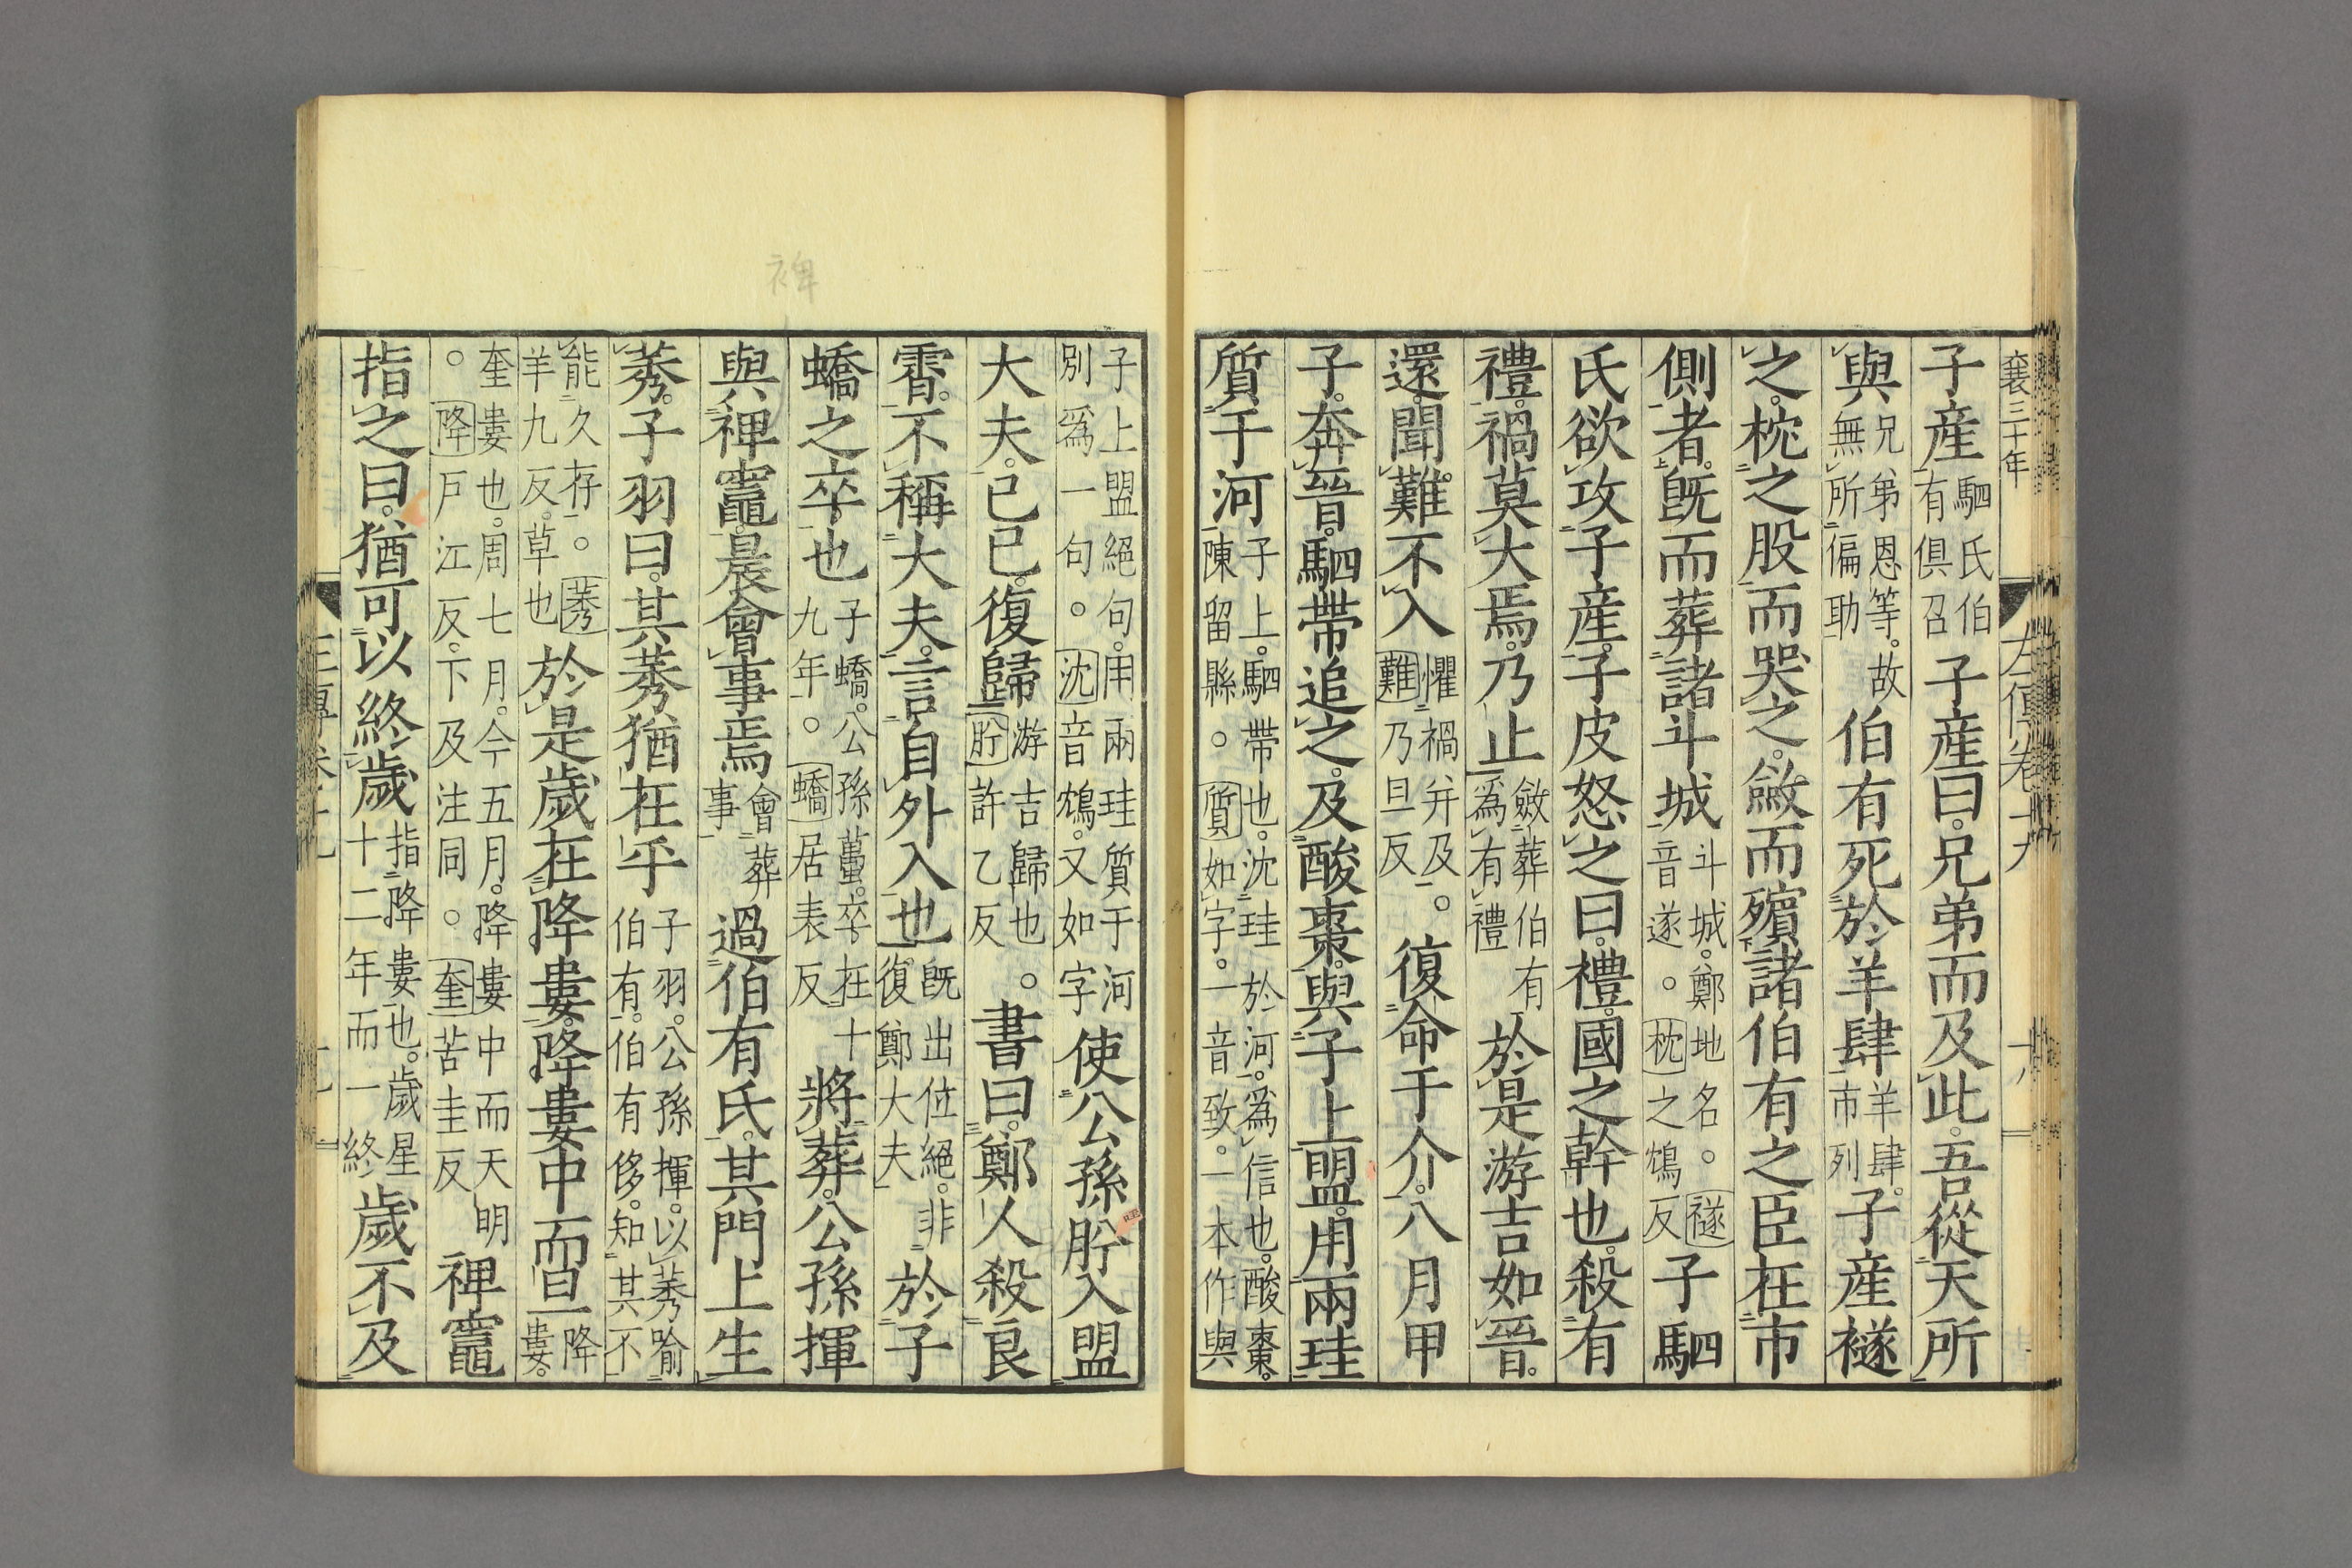 襄三十年
左傳卷十九
子産駟氏伯有俱召子産曰兄弟而及此吾從天所
與兄弟恩等故無所偏助伯有死於羊肆羊肆市列子産襚
之枕之股而哭之斂而殯諸伯有之臣在市
側者既而葬諸斗城斗城鄭地名。襚音遂。枕之鴆反子駟
氏欲攻子産子皮怒之曰禮國之幹也殺有
禮禍莫大焉乃止斂葬伯有爲有禮於是游吉如晉
還聞難不入懼禍并及。難乃旦反復命于介八月甲
子奔晉駟帶追之及酸棗與子上盟用兩珪
質于河子上駟帶也沈珪於河爲信也酸棗陳留縣。質如字一音致一本作與
子上盟絕句用兩珪質于河別爲一句。沈音鴆又如字使公孫肸入盟
大夫己巳復歸游吉歸也。肸許乙反書曰鄭人殺良
霄不稱大夫言自外入也既出位絕非復鄭大夫於子
蟜之卒也子蟜公孫蠆卒在十九年。蟜居表反將葬公孫揮
與裨竈晨會事焉會葬事過伯有氏其門上生
莠子羽曰其莠猶在乎子羽公孫揮以莠喻伯有伯有侈知其不
能久存。莠羊九反草也於是歲在降婁降婁中而旦降婁
奎婁也周七月今五月降婁中而天明。降戶江反下及注同。奎苦圭反裨竈
指之曰猶可以終歲指降婁也歲星十二年而一終歲不及
裨